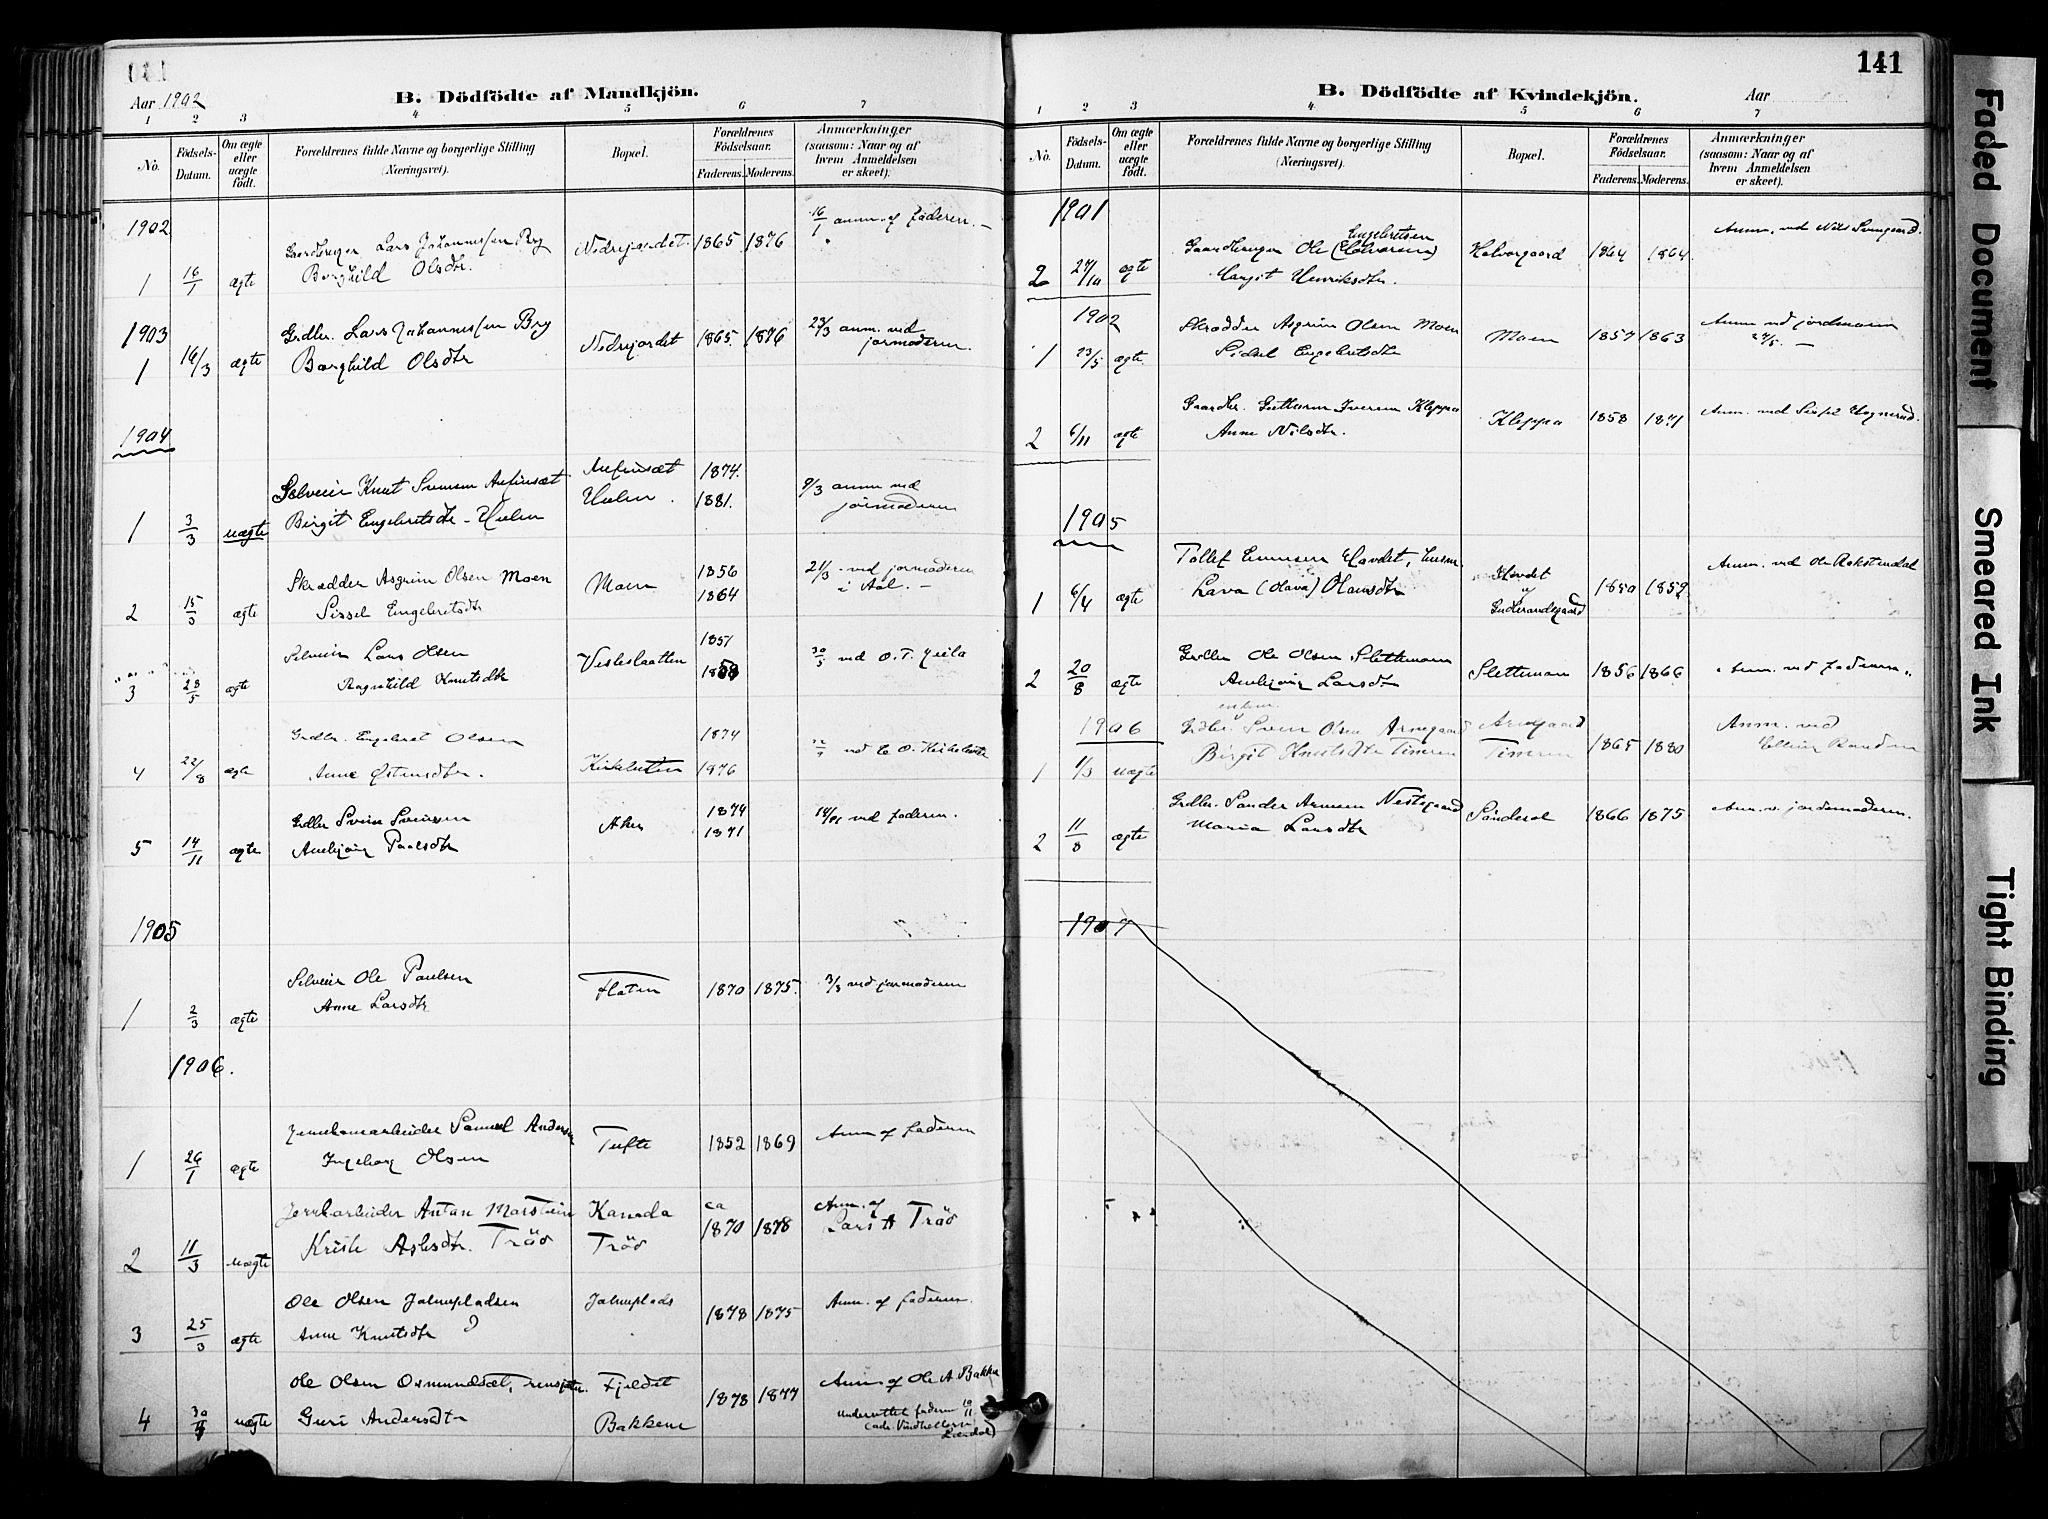 141
Aar 1902
B. Dödfödte af Mandkjön.
1 2 3 4 5 6 7
No.
Födsels-Datum.
Om ægte eller uægte födt.
Forældrenes fulde Navne og borgerlige Stilling (Næringsvei).
Bopæl.
Forældrenes Födselsaar.
Faderens. Moderens.
Anmærkninger (saasom: Naar og af hvem Anmeldelsen er skeet).
1902
16/1 anm. af faderen. —
Gaardbruger Lars Johannessen Bry Nedrejordet. 1865 1876
1 16/1 ægte Borghild Olsdtr.
1903
Grdbr. Lars Johannessen Bry Nedrejordet 1865 1876 23/3 anm. ved jormoderen.
1 16/3 ægte Borghild Olsdtr
1904
Selveier Knut Svensen Anfinsæt Anfinsæt 1874.
1 3/3 uægte Birgit Engebretsdtr. 1881. 9/3 anm ved jormoderen
Skrædder Asgrim Olsen Moen Moen 1856 21/3 - ved jormoderen i Aal. —
2 15/3 ægte Sissel Engebretsdtr 1864
Selveier Lars Olsen Vesleslaatten 1851 30/5 ved O. T. Geilo
3 28/5 ægte Ragnhild Knutsdtr
Grdbr. Engebret Olsen 1874
4 22/8 ægte Anne Østensdtr. 1876
Grdbr Svein Sveinsen Aker 1874 ved faderen.
5 14/11 ægte Annbjørg Paalsdtr 1871
1905
Selveier Ole Paulsen Flaten 1870 1875. 3/3 ved jormoderen
1 2/3 ægte Anne Larsdtr
1906.
Jernbanearbeider Samuel Andersen Tufte 1852 1869 Anm af faderen
1 26/1 ægte Ingeborg Olsen
Jernbarbeider Anton Marstein Kanada ca 1870 1878 Anm. af Lars A Tröo
2 11/3 uægte Kristi Aslesdtr. Tröo Tröo
Ole Olsen 1878 1875 Anm. af faderen.
3 25/3 ægte Anne Knutsdtr
Ole Olsen Osmundsæt, Fjeldet 1878 1877 Anm af Ole A. Bakken
4 uægte Guri Andersdtr Bakkene underrettet faderen 10/11
Lærdal)
B. Dödfödte af Kvindekjön.
Aar
1 2 3 4 5 6 7
No.
Födsels-Datum.
Om ægte eller uægte födt.
Forældrenes fulde Navne og borgerlige Stilling (Næringsvei).
Bopæl.
Forældrenes Födselsaar.
Faderens. Moderens.
Anmærkninger (saasom: Naar og af hvem Anmeldelsen er skeet).
1901
Engebretsen
Gaardbruger Ole (Halvorsen) Halvorgaard 1864 1864. Anm. ved Nils Svengaard.
2 27/10 ægte Margit Henriksdtr.
1902
Skrædder Asgrim Olsen Moen Moen 1857 1863 Anm ved jordmoren 27/5. —
1 23/5 ægte Sidsel Engebretsdtr
Gaardbr. Guttorm Iversen Kleppo Kleppo 1858 1871
2 6/11 ægte Anne Nilsdtr.
1905
Tollef Hovdet Anm. ved Ole
1 6/4 ægte Lava (Olava) Olavsdtr 1850 1852
Grdbr Ole Olsen Slettemoen Slettemoen 1856 1866 Anm. ved faderen.
2 20/8 ægte Annbjørg Larsdtr
1906 enkem. Grdbr. Svein Olsen Arnegaard Arnegaard Anm. ved
1 1/3 uægte Birgit Knutsdtr Timren Timren 1865 1880
Grdbr. Sander Nestegaard 1866 1875 Anm. v. jordemoderen.
2 11/8 ægte Maria Larsdtr
1907
Faded Document
Smeared Ink
Tight Binding